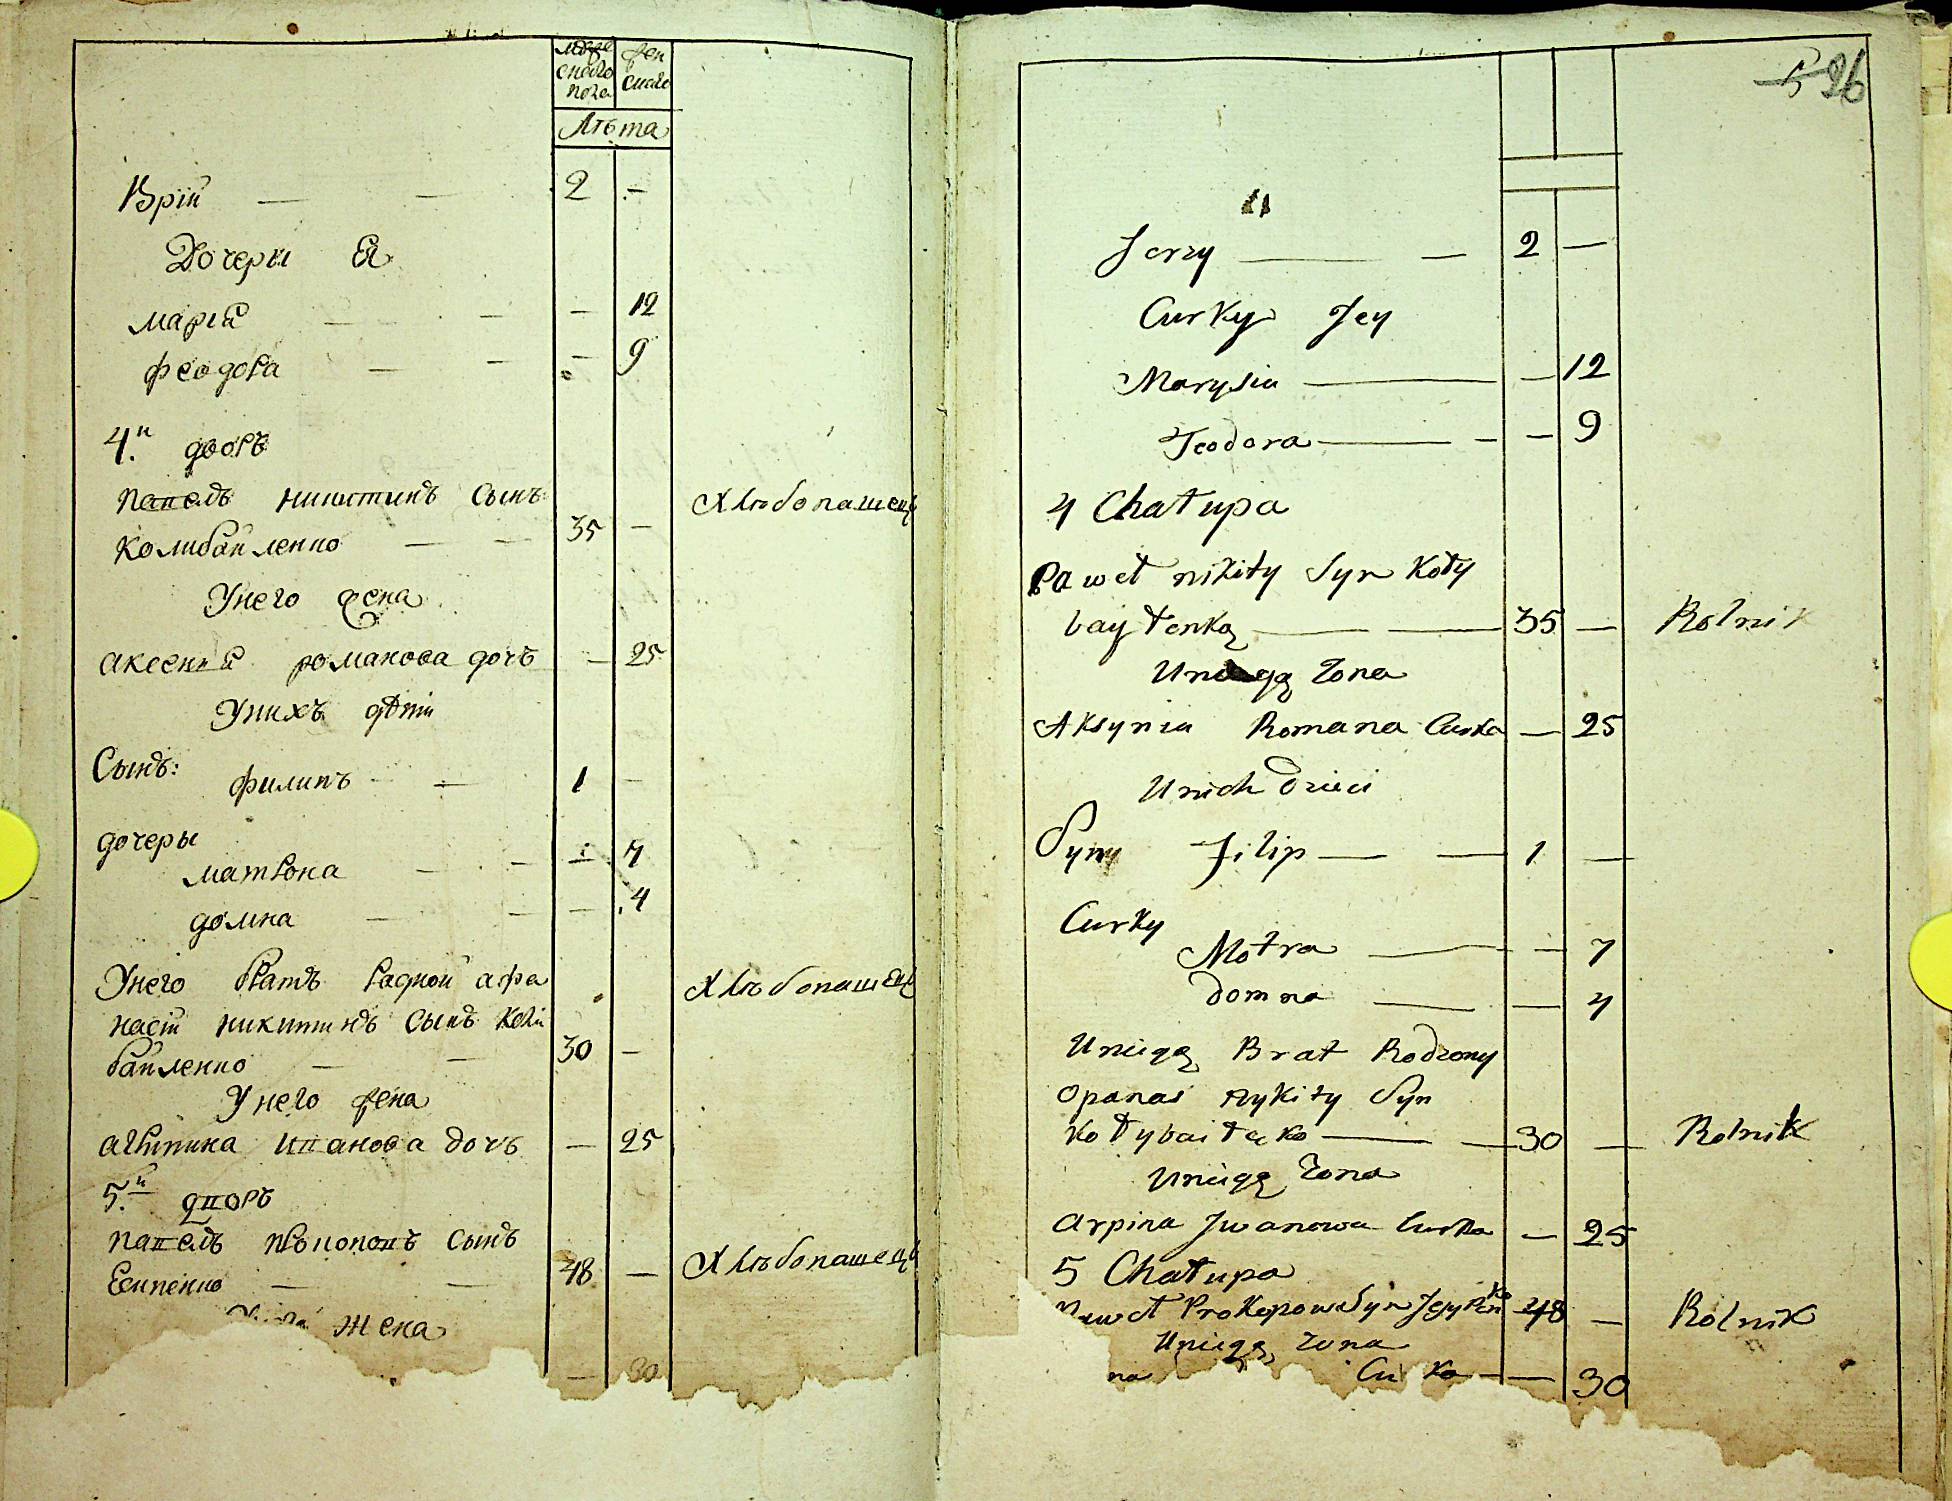 мужескаго пола
женскаго
Лѣта
Юрій — — 2 —
Дочери Ея
марія — — — 12
феодора — — — 9
4.й дворъ
павелъ никитинъ сынъ Хлѣбопашецъ
колибайленко — — 35 —
Унего жена
аксенія романова дочъ — 25
Унихъ дѣти
Сынъ: филипъ — — 1 —
дочеры
матрона — — — 7
домна — — — 4
Унего братъ радной афа Хлѣбопашецъ
насій никитинъ сынъ коли
байленко — — 30 —
Унего жена
агрипина иванова дочъ — 25
5.й дворъ
павелъ прокоповъ сынъ
Есипенко — — 48 — Хлѣбопашецъ
жена
— 30
5 26
Jerzy — — 2 —
Curky Jey
Marysia — — 12
Teodora — — — 9
4 Chałupa
Paweł nikity Syn Koły
bayłenką — — 35 — Rolnik
Uniegą Zona
Aksynia Romana Curka — 25
Unich Dzieci
Syny Filip — — 1 —
Curky
Motra — — 7
Domna — — 4
Uniegą Brat Rodzony
Opanas Nykity Syn
Kołybaiłęko — — 30 — Rolnik
Uniegą Zona
Arpina Jwanowa Curka — 25
5 Chałupa
Paweł Prokopow Syn Jesypenko 48 — Rolnik
Uniegą Zona
na Curka — — 30